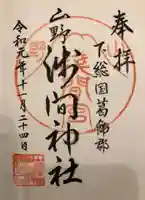 奉拝
下総国葛飾郡
山野
浅間神社
令和元年十一月二十四日